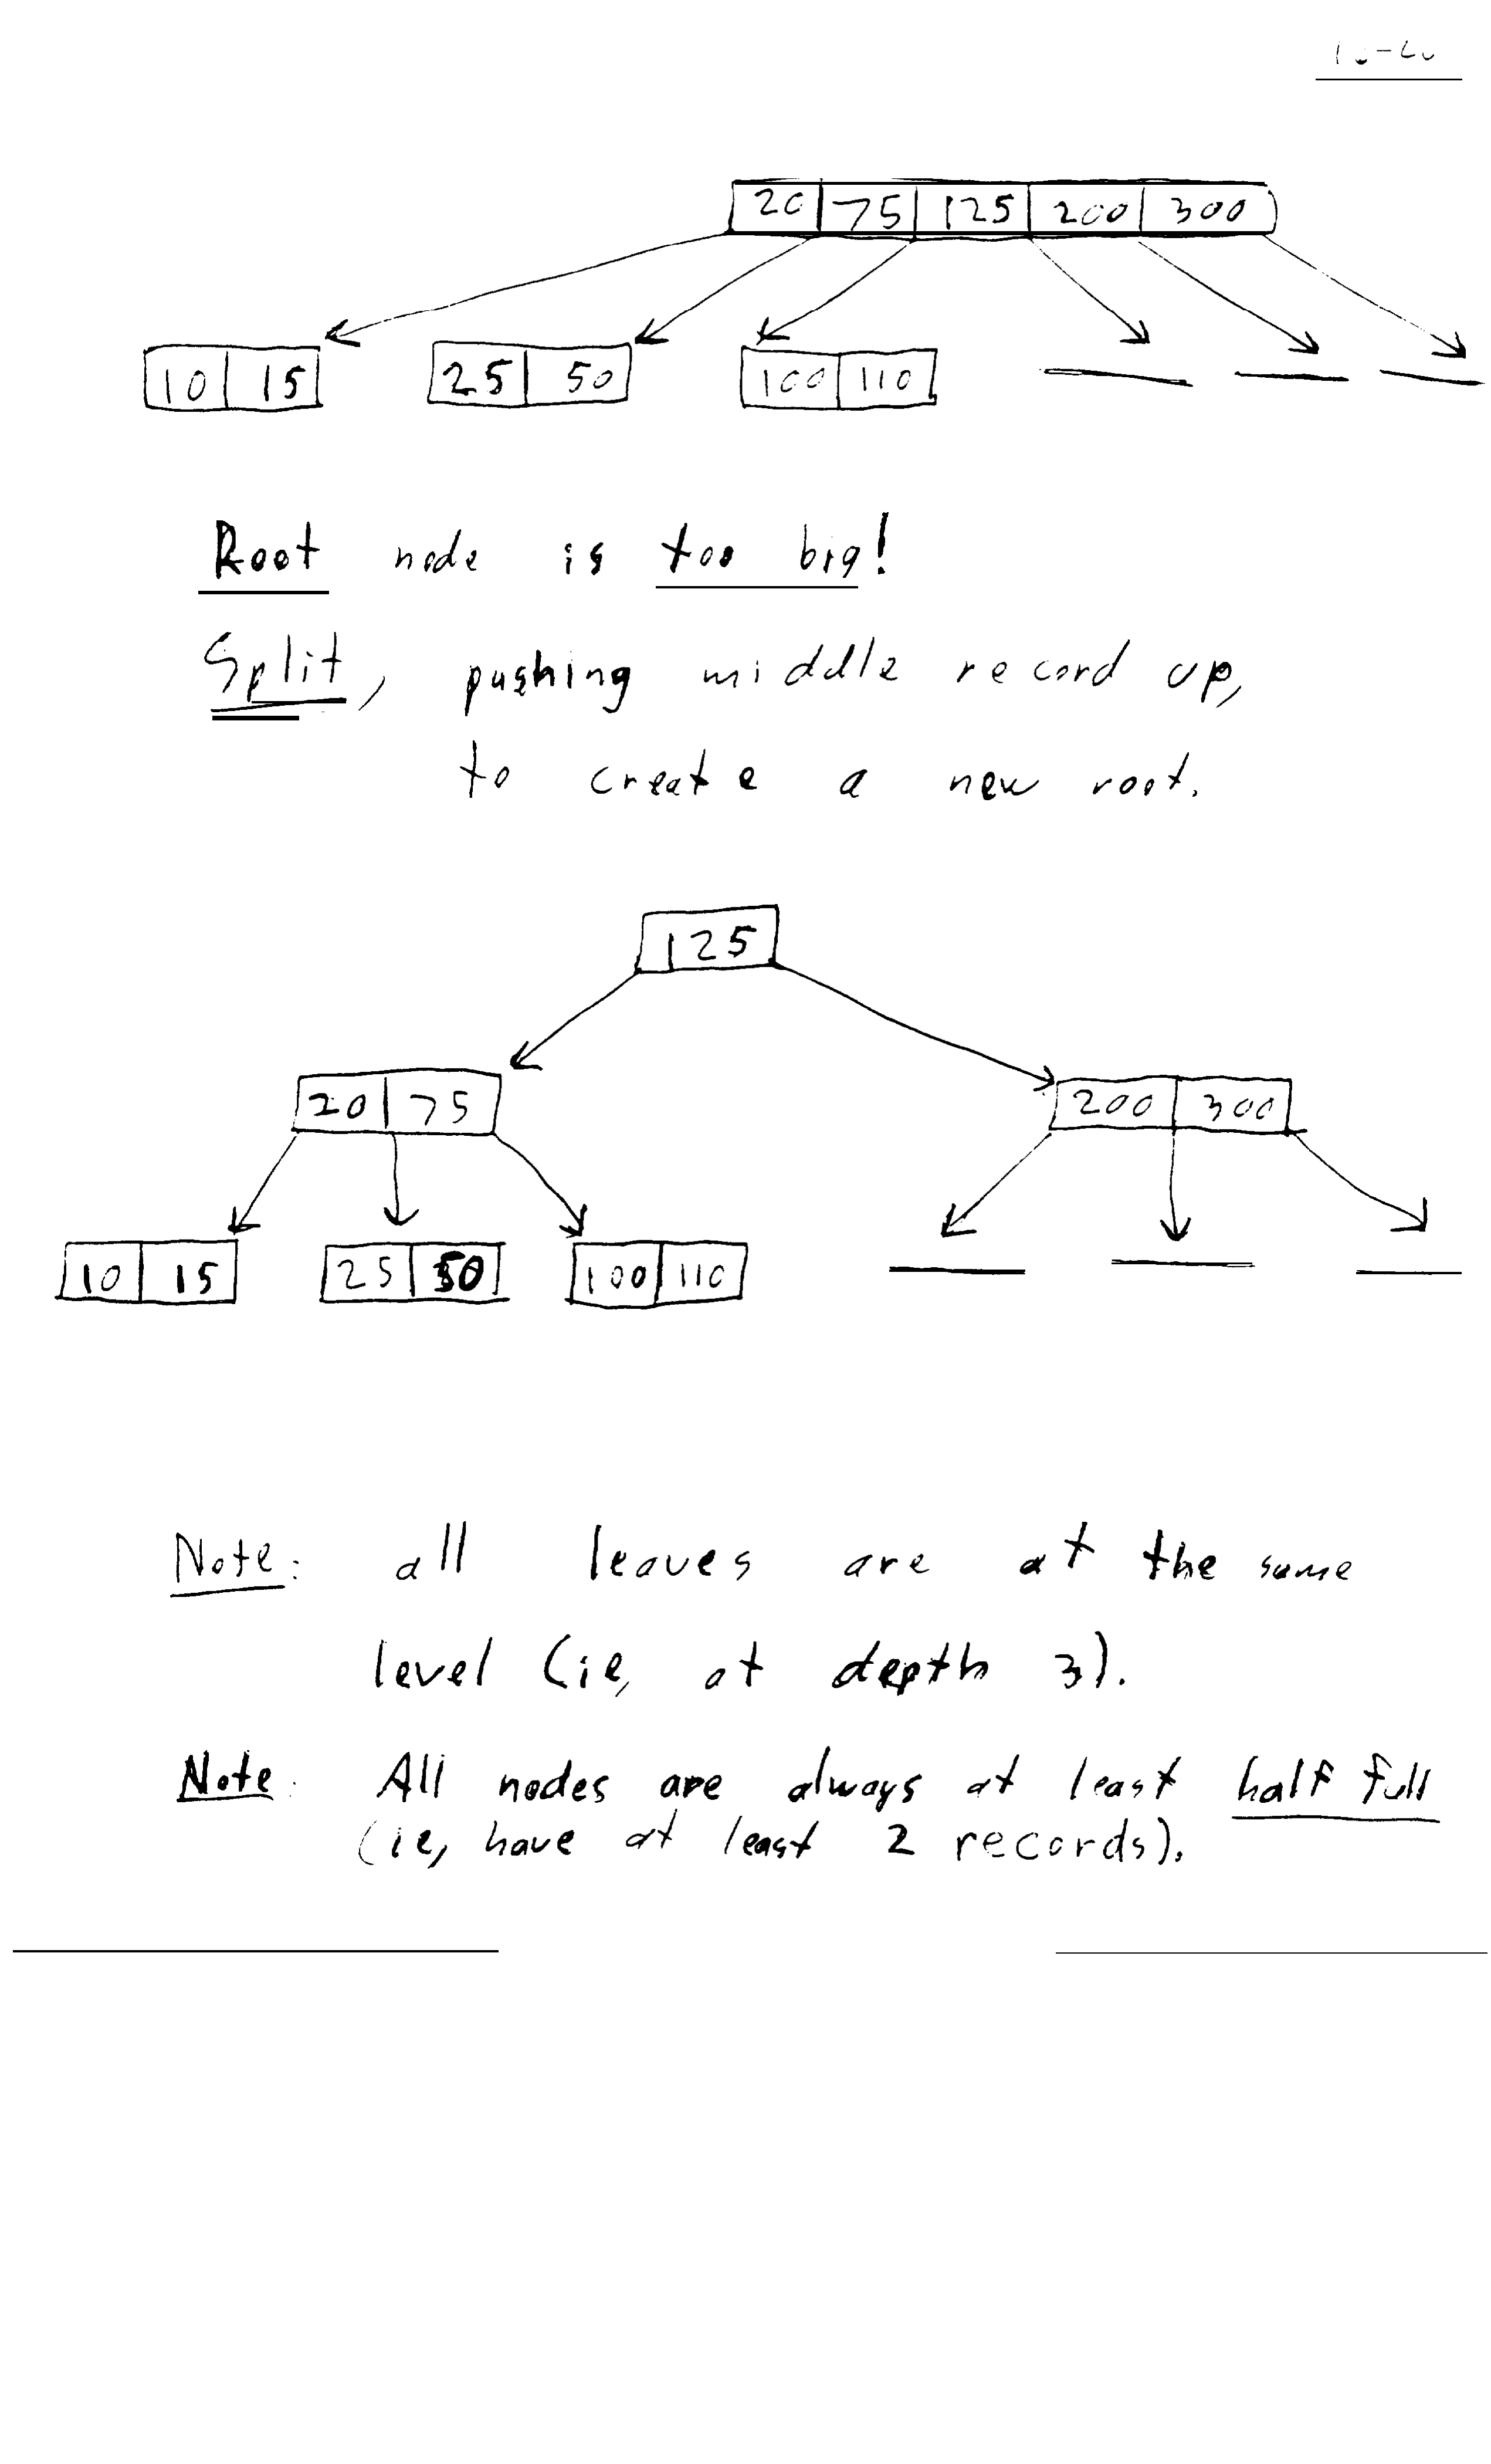 20 75 125 200 300
10 15 25 50 100 110
Root node is too big!
Split, pushing middle record up,
to create a new root.
125
20 75 200 300
10 15 25 50 100 110
Note: all leaves are at the same
level (ie, at depth 3).
Note: All nodes are always at least half full
(ie, have at least 2 records).